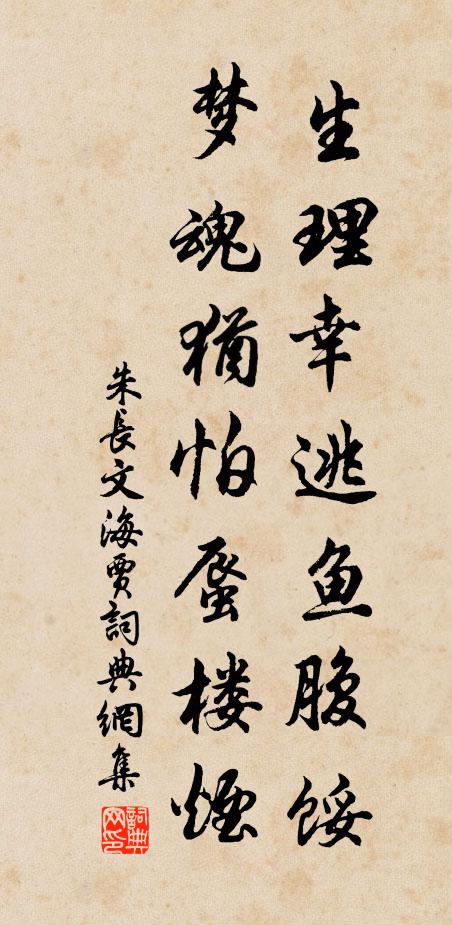 生理幸逃鱼腹馁
梦魂猶怕蜃楼煙
朱長文海賈詞典網集
詞典网印